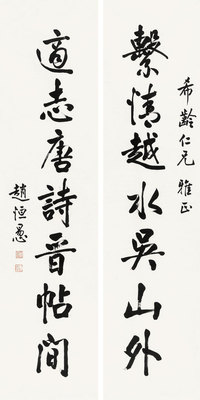 希齡仁兄 雅正
繫情越水吳山外
適志唐詩晉帖間
趙恒惖